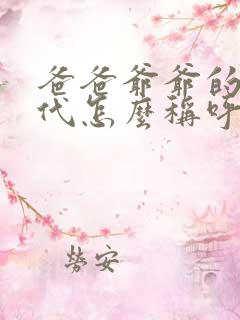 爸爸爺爺的
代怎麼稱呼
勞安